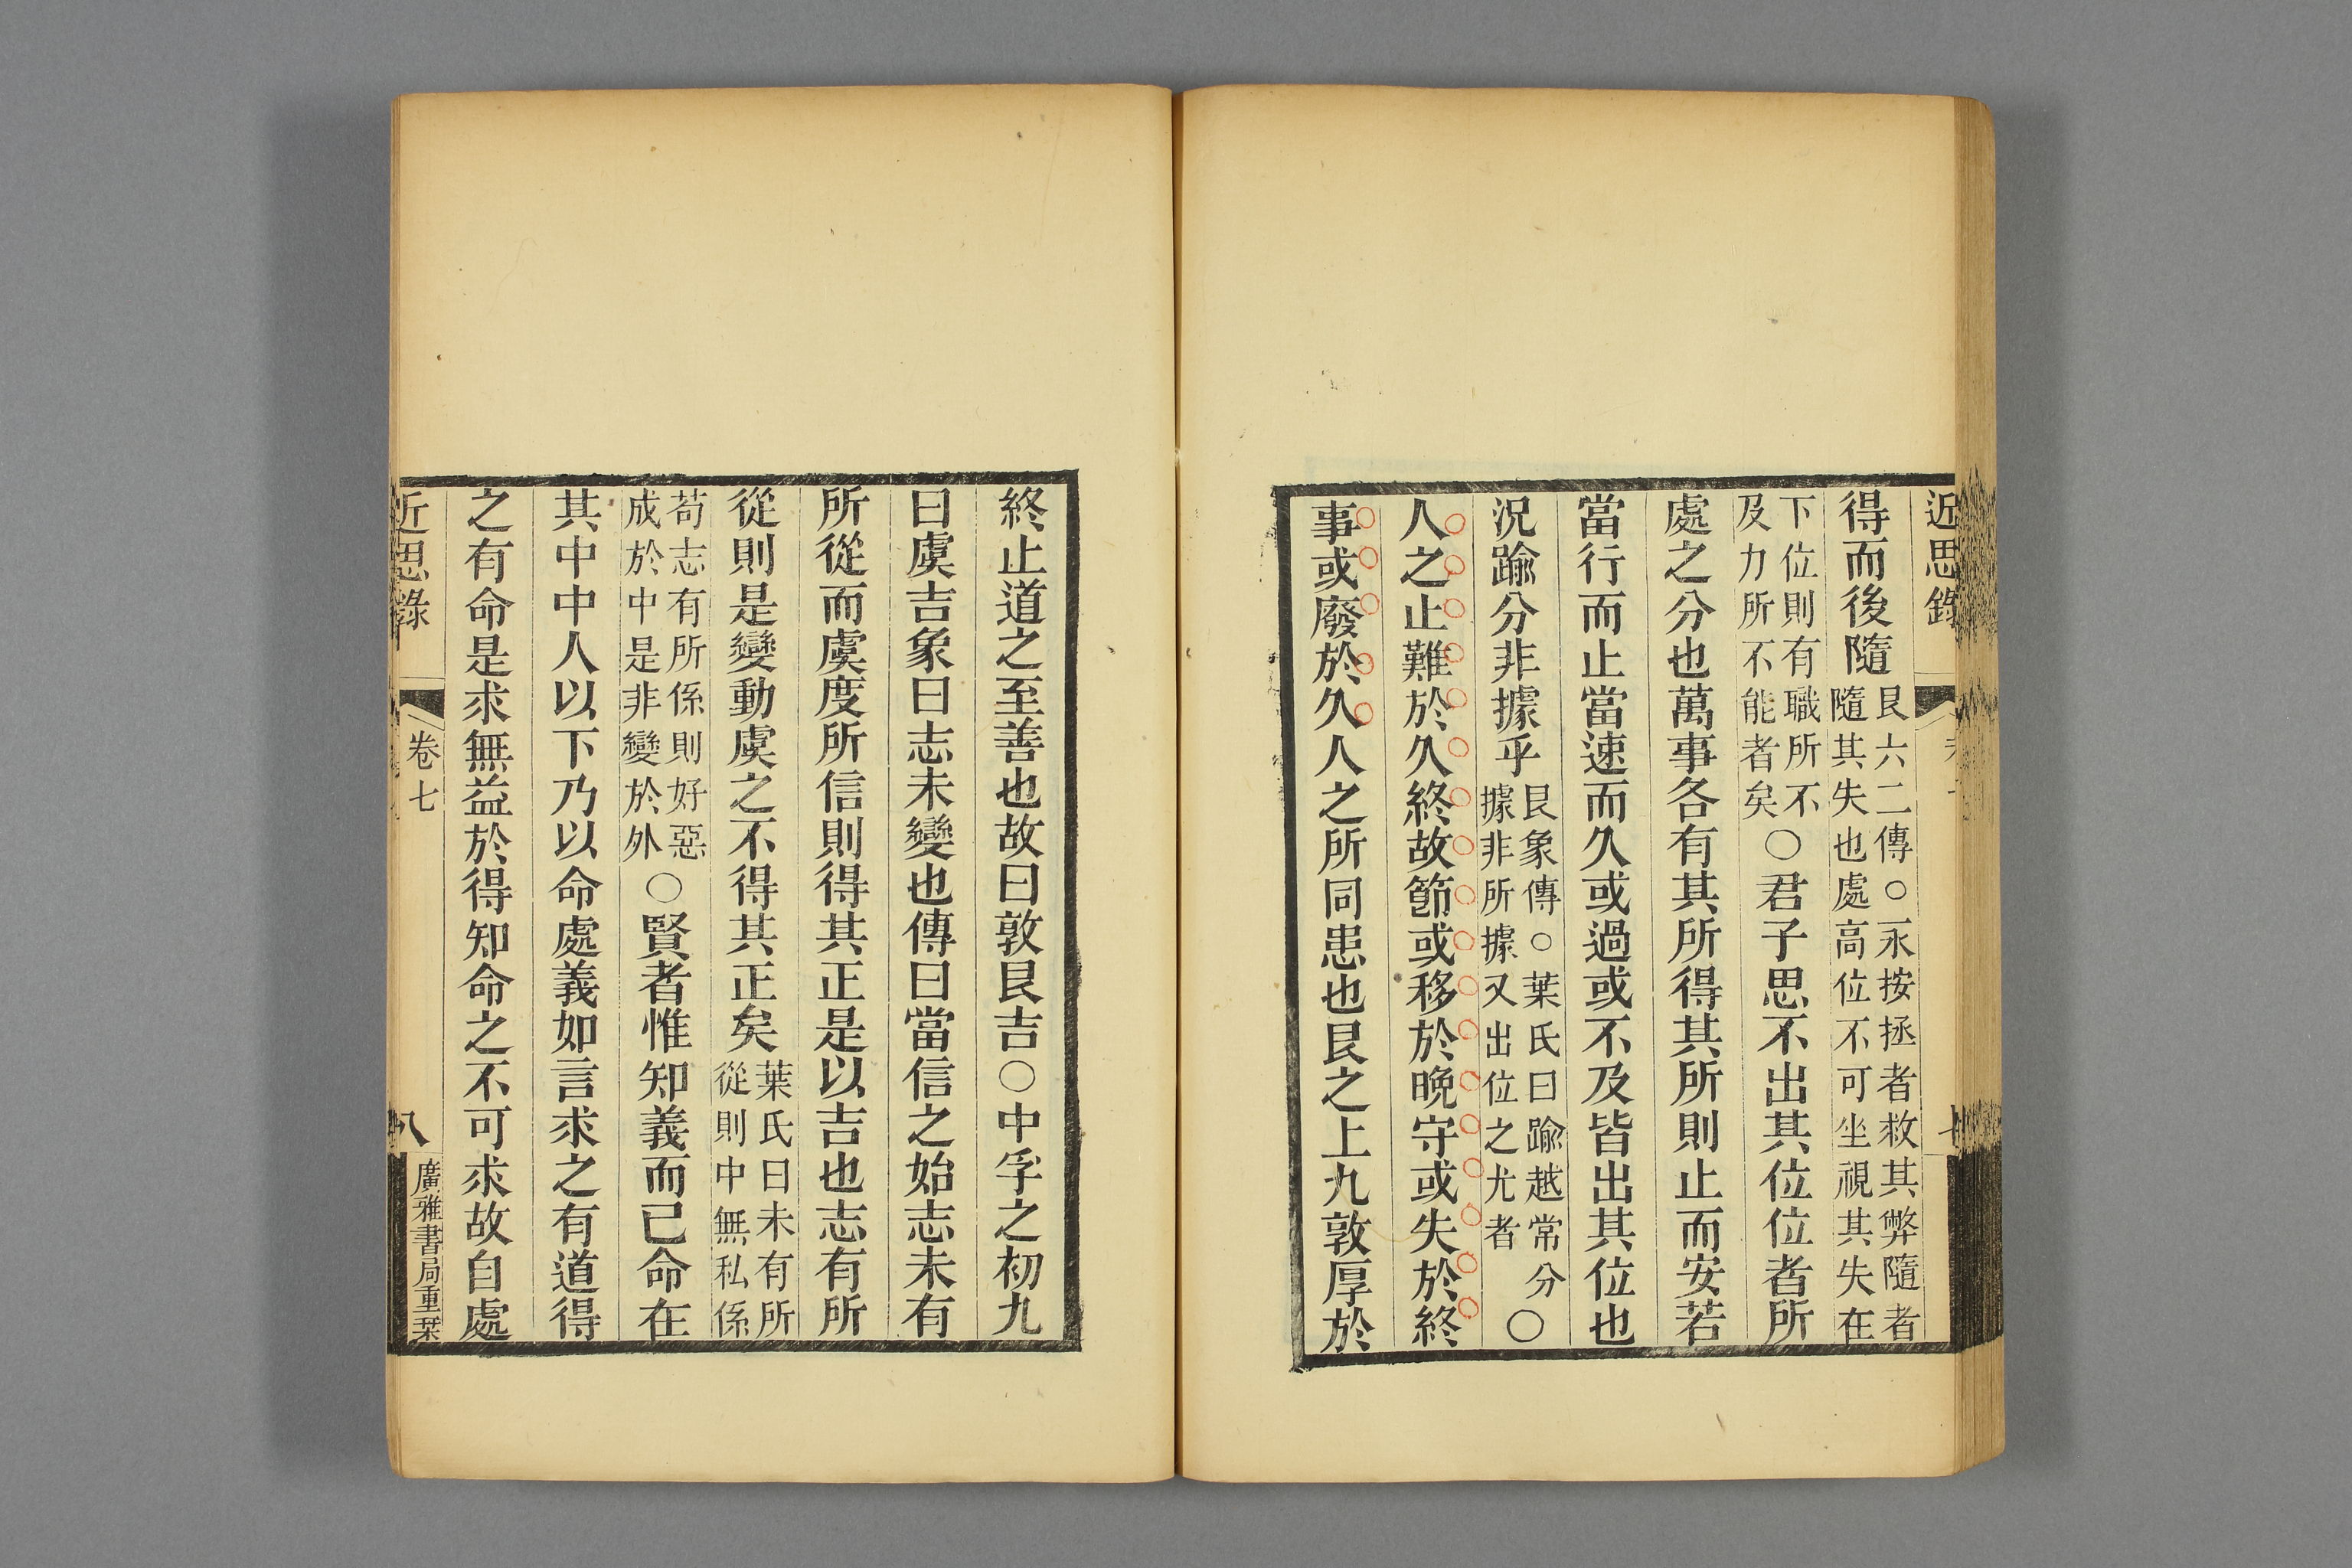 近思錄
得而後隨艮六二傳○永按拯者救其弊隨者隨其失也處高位不可坐視其失在
下位則有職所不及力所不能者矣○君子思不出其位位者所
處之分也萬事各有其所得其所則止而安若
當行而止當速而久或過或不及皆出其位也
況踰分非據乎艮象傳○葉氏曰踰越常分據非所據又出位之尤者○
人之止難於久終故節或移於晚守或失於終
事或廢於久人之所同患也艮之上九敦厚於
終止道之至善也故曰敦艮吉○中孚之初九
曰虞吉象曰志未變也傳曰當信之始志未有
所從而虞度所信則得其正是以吉也志有所
從則是變動虞之不得其正矣葉氏曰未有所從則中無私係
苟志有所係則好惡成於中是非變於外○賢者惟知義而已命在
其中中人以下乃以命處義如言求之有道得
之有命是求無益於得知命之不可求故自處
近思錄 卷七 八 廣雅書局重栞